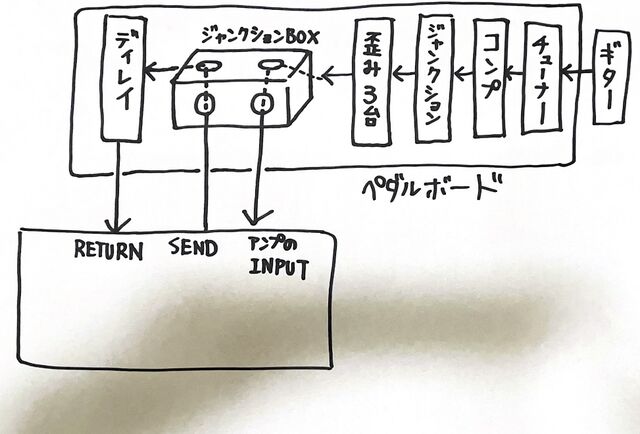 ジャンクションBOX
ディレイ
歪み3台
ジャンクション
コンプ
チューナー
ギター
ペダルボード
RETURN
SEND
アンプの
INPUT